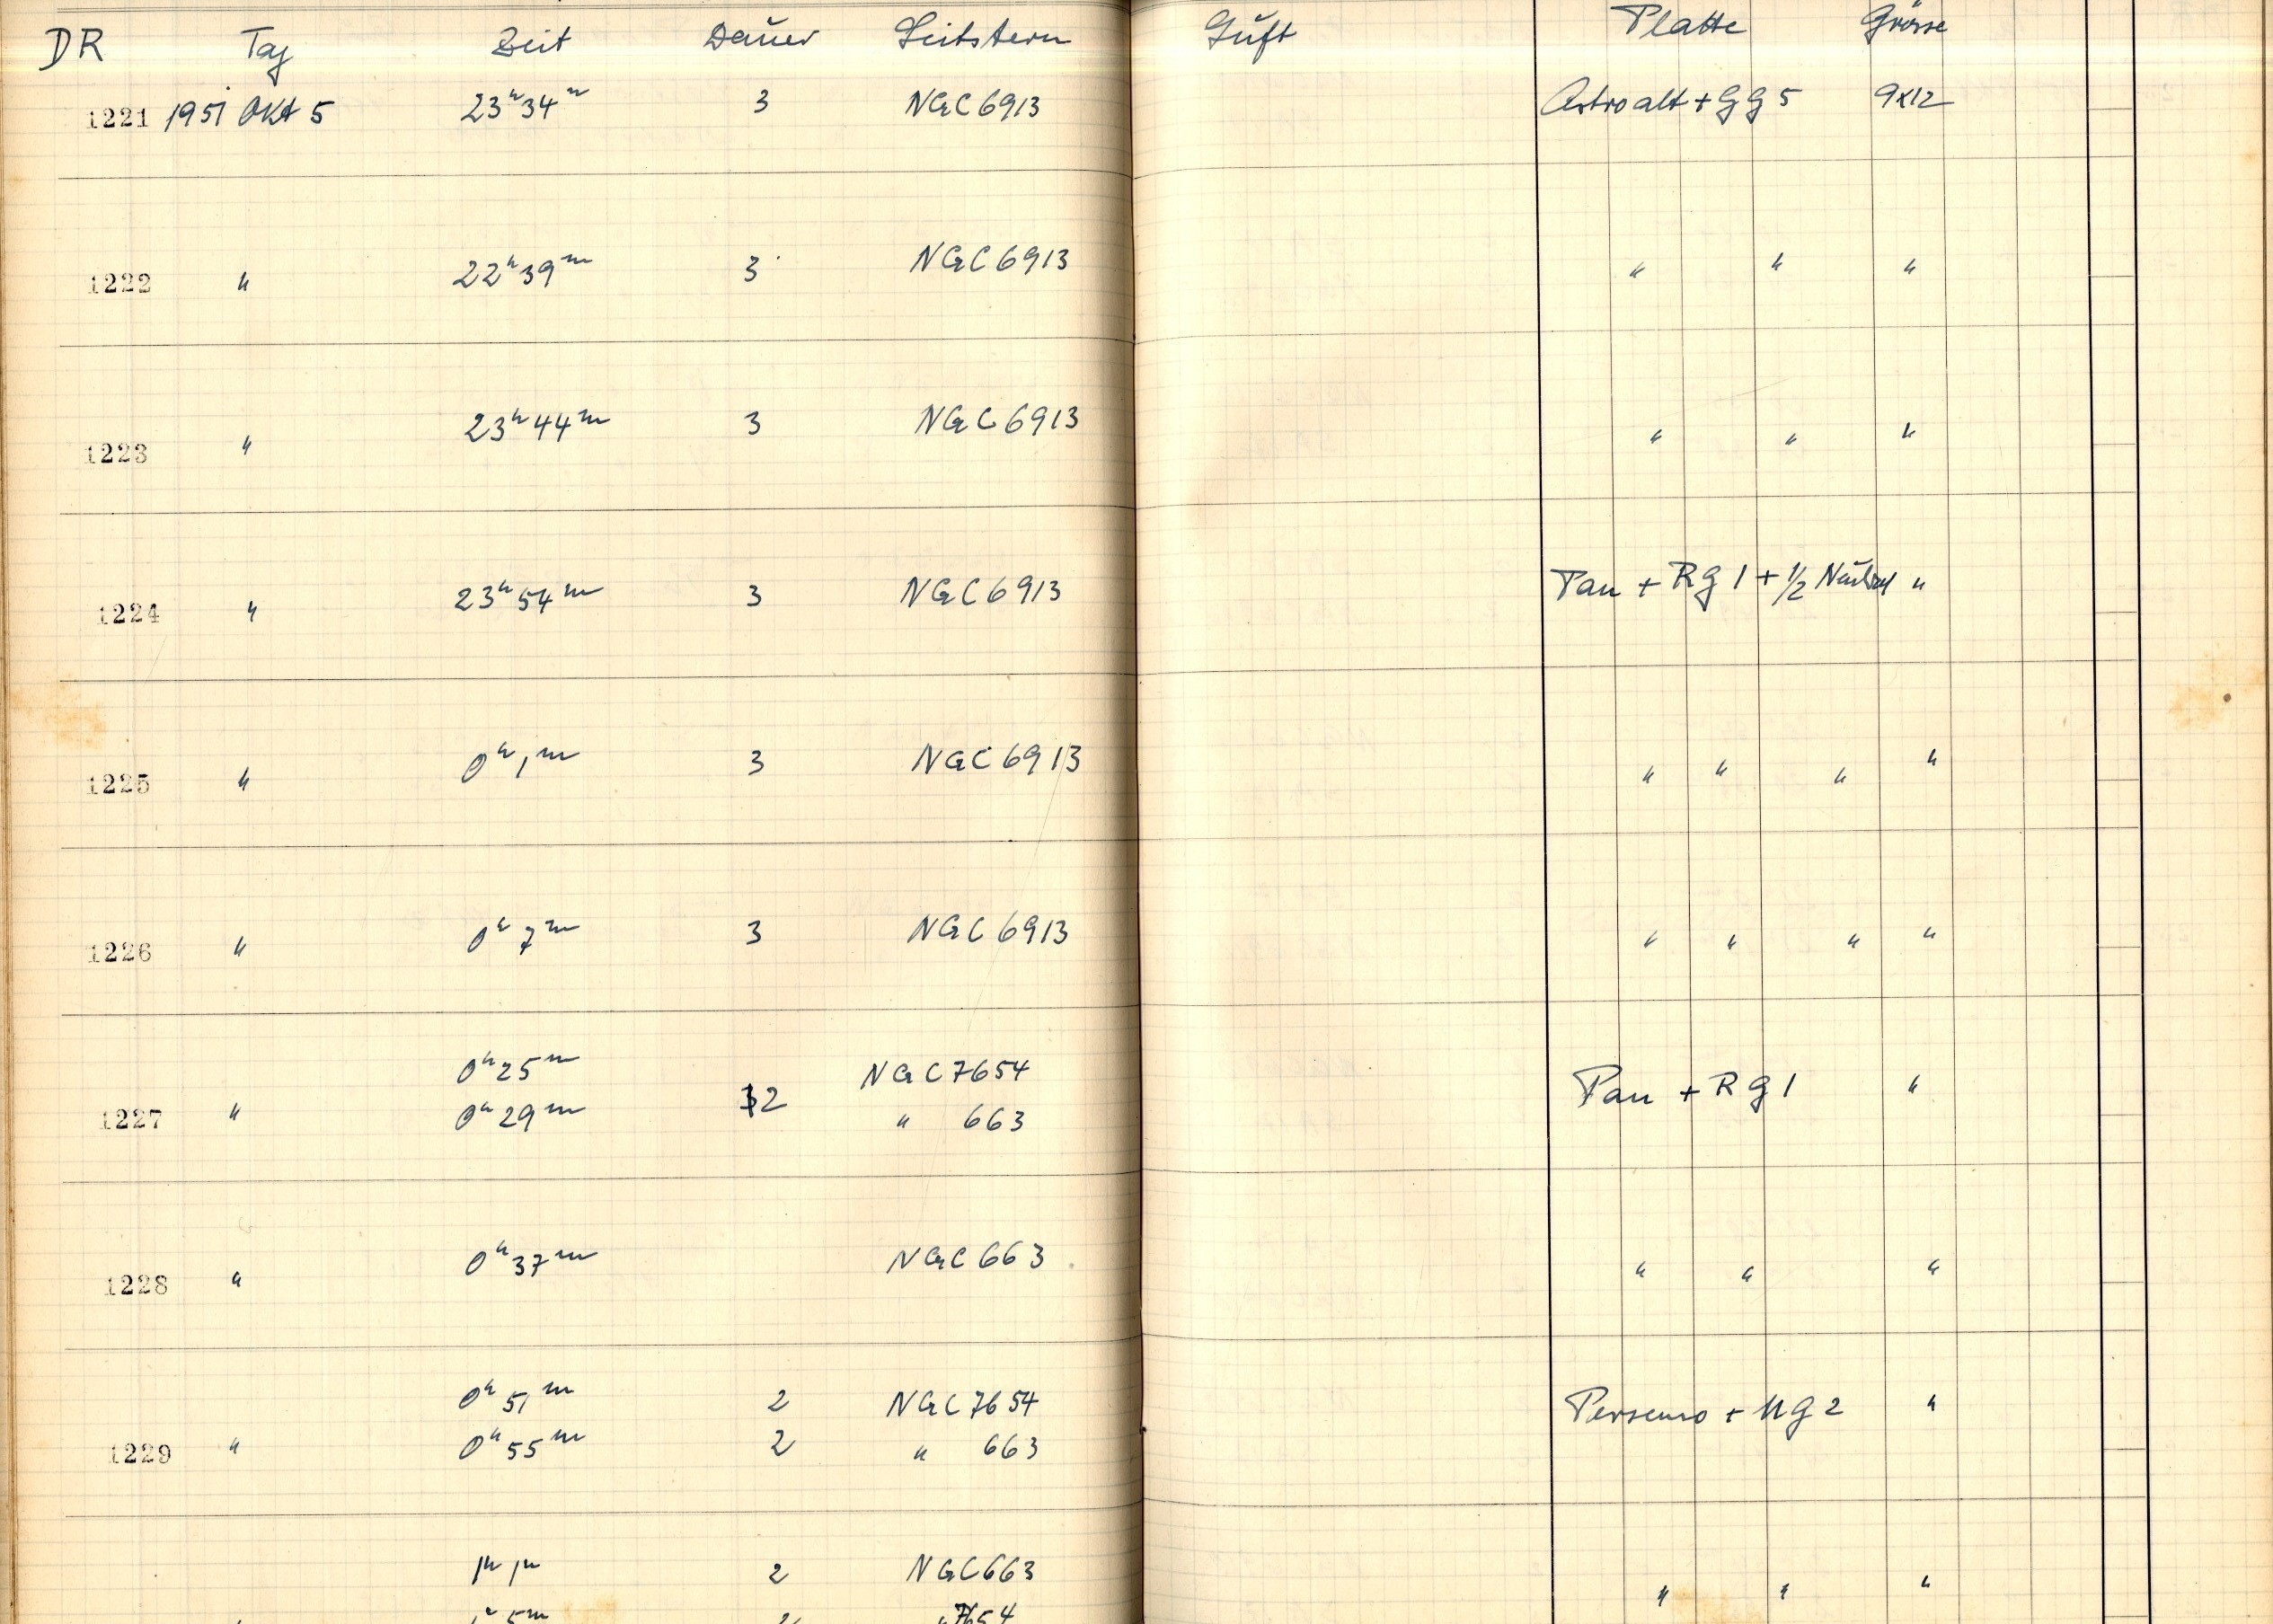 DR Tag Zeit Dauer Leitstern Luft Platte Grösse
1221 1951 Okt 5 23h34m 3 NGC 6913 Astro alt + GG 5 9x12
1222 " 22h39m 3 NGC 6913 " " "
1223 " 23h44m 3 NGC 6913 " " "
1224 " 23h54m 3 NGC 6913 Pan + RG 1 + 1/2 Neutral "
1225 " 0h1m 3 NGC 6913 " " " "
1226 " 0h7m 3 NGC 6913 " " " "
0h25m NGC 7654
1227 " 0h29m 2 " 663 Pan + RG 1 "
1228 " 0h37m NGC 663 " " "
0h51m 2 NGC 7654 Perseno + UG 2 "
1229 " 0h55m 2 " 663
1h1m 2 NGC 663 " " "
1h5m 2 " 7654